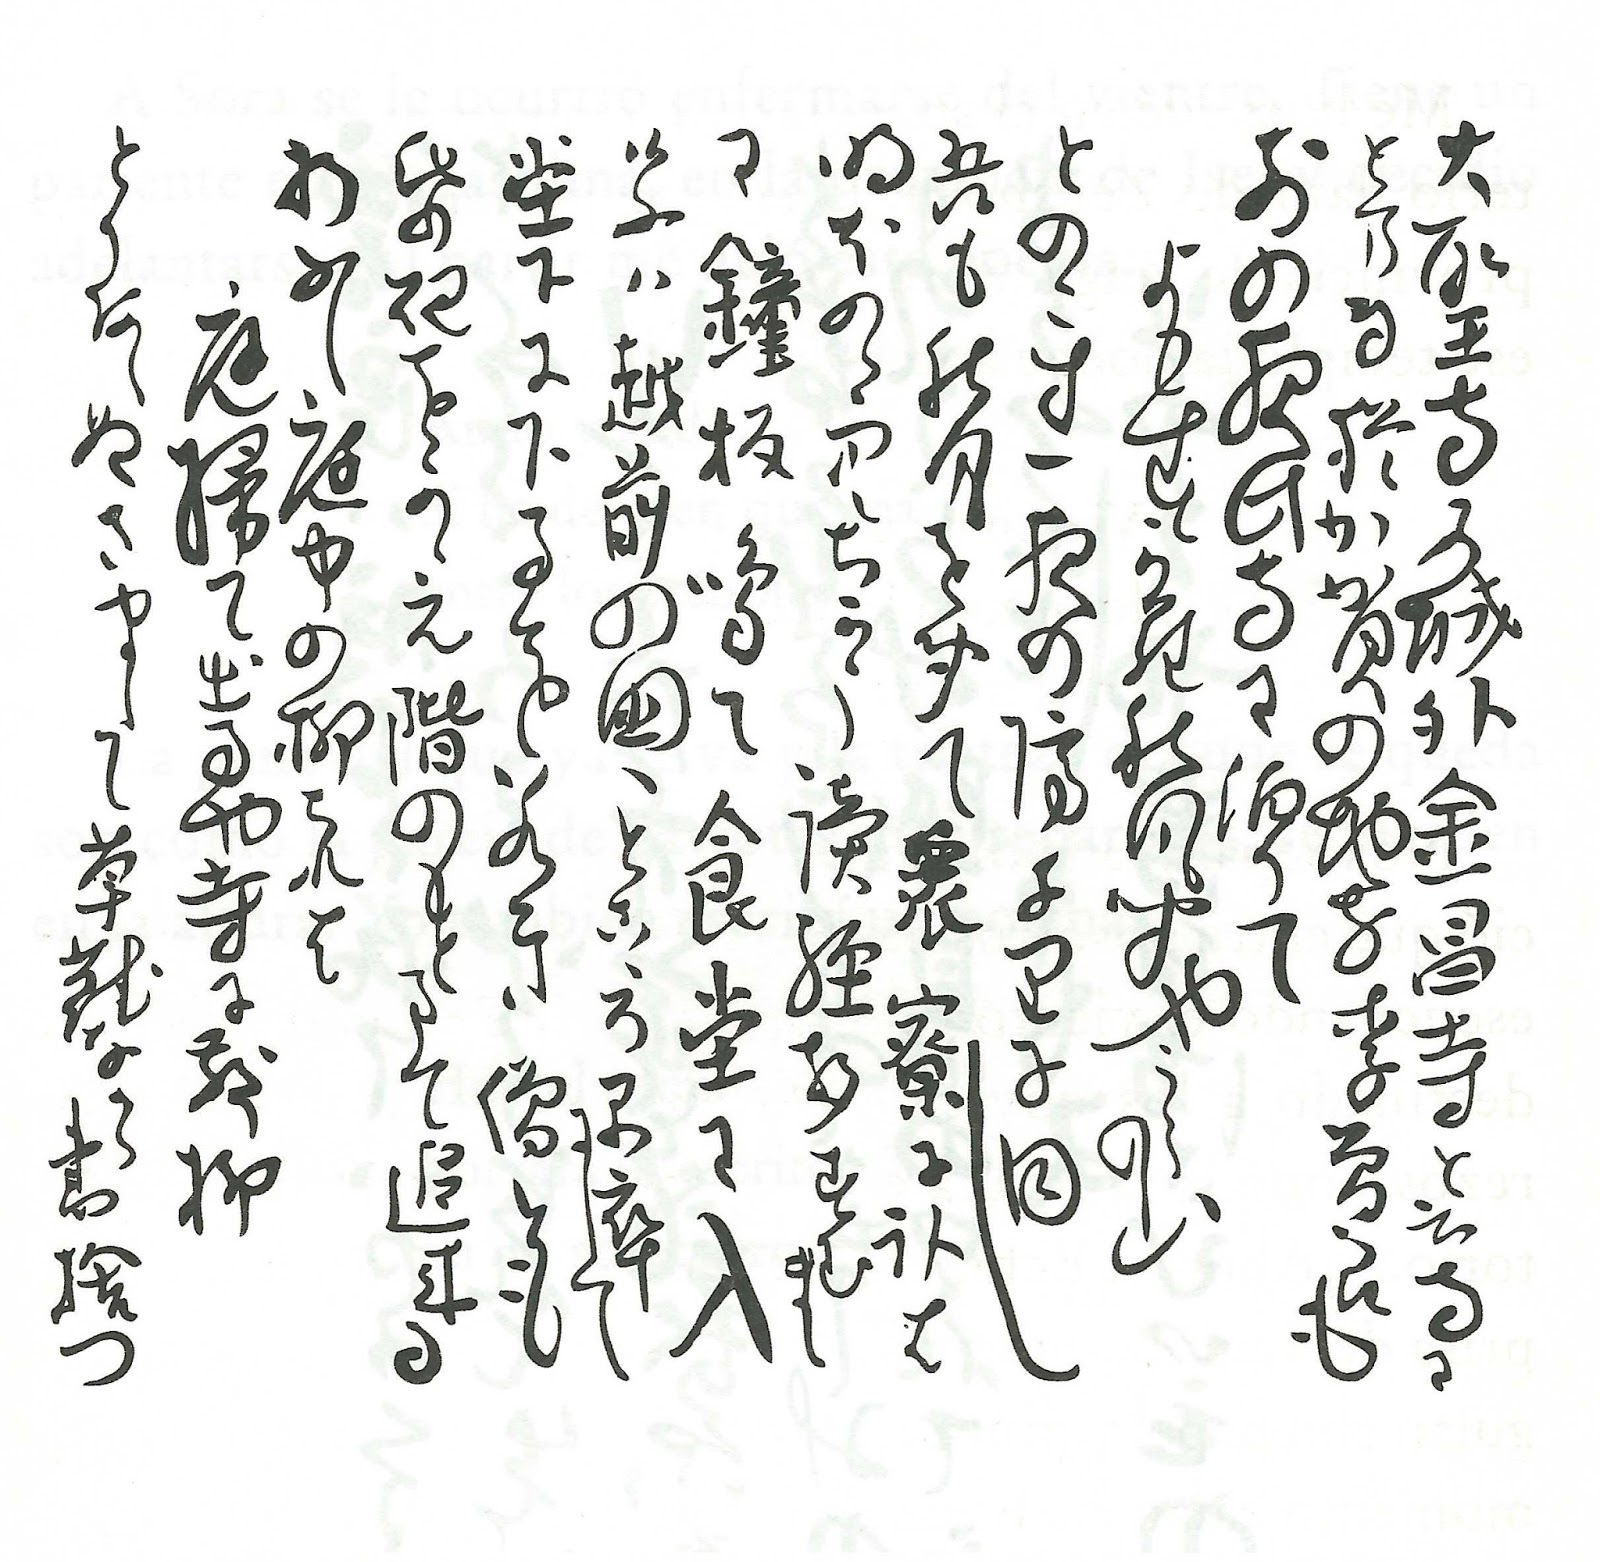 大聖寺の城外金昌寺と云寺に
とまる猶か賀の地也曽良も
前の夜此寺に泊りて
よもすから秋風聞やうらの山
とのこす一夜の隔千里に同し
吾も秋風を聞て衆寮に臥は
明ほのゝ空ちかう読経声すむまゝ
に鐘板鳴て食堂に入
けふは越前の国へとこゝろ早卒にして
堂下に下るを若き僧とも
紙硯をかゝえ階のもとまて追来る
折ふし庭中の柳ちれは
庭掃て出るや寺に散柳
とりあへぬさまして草鞋なから書捨つ